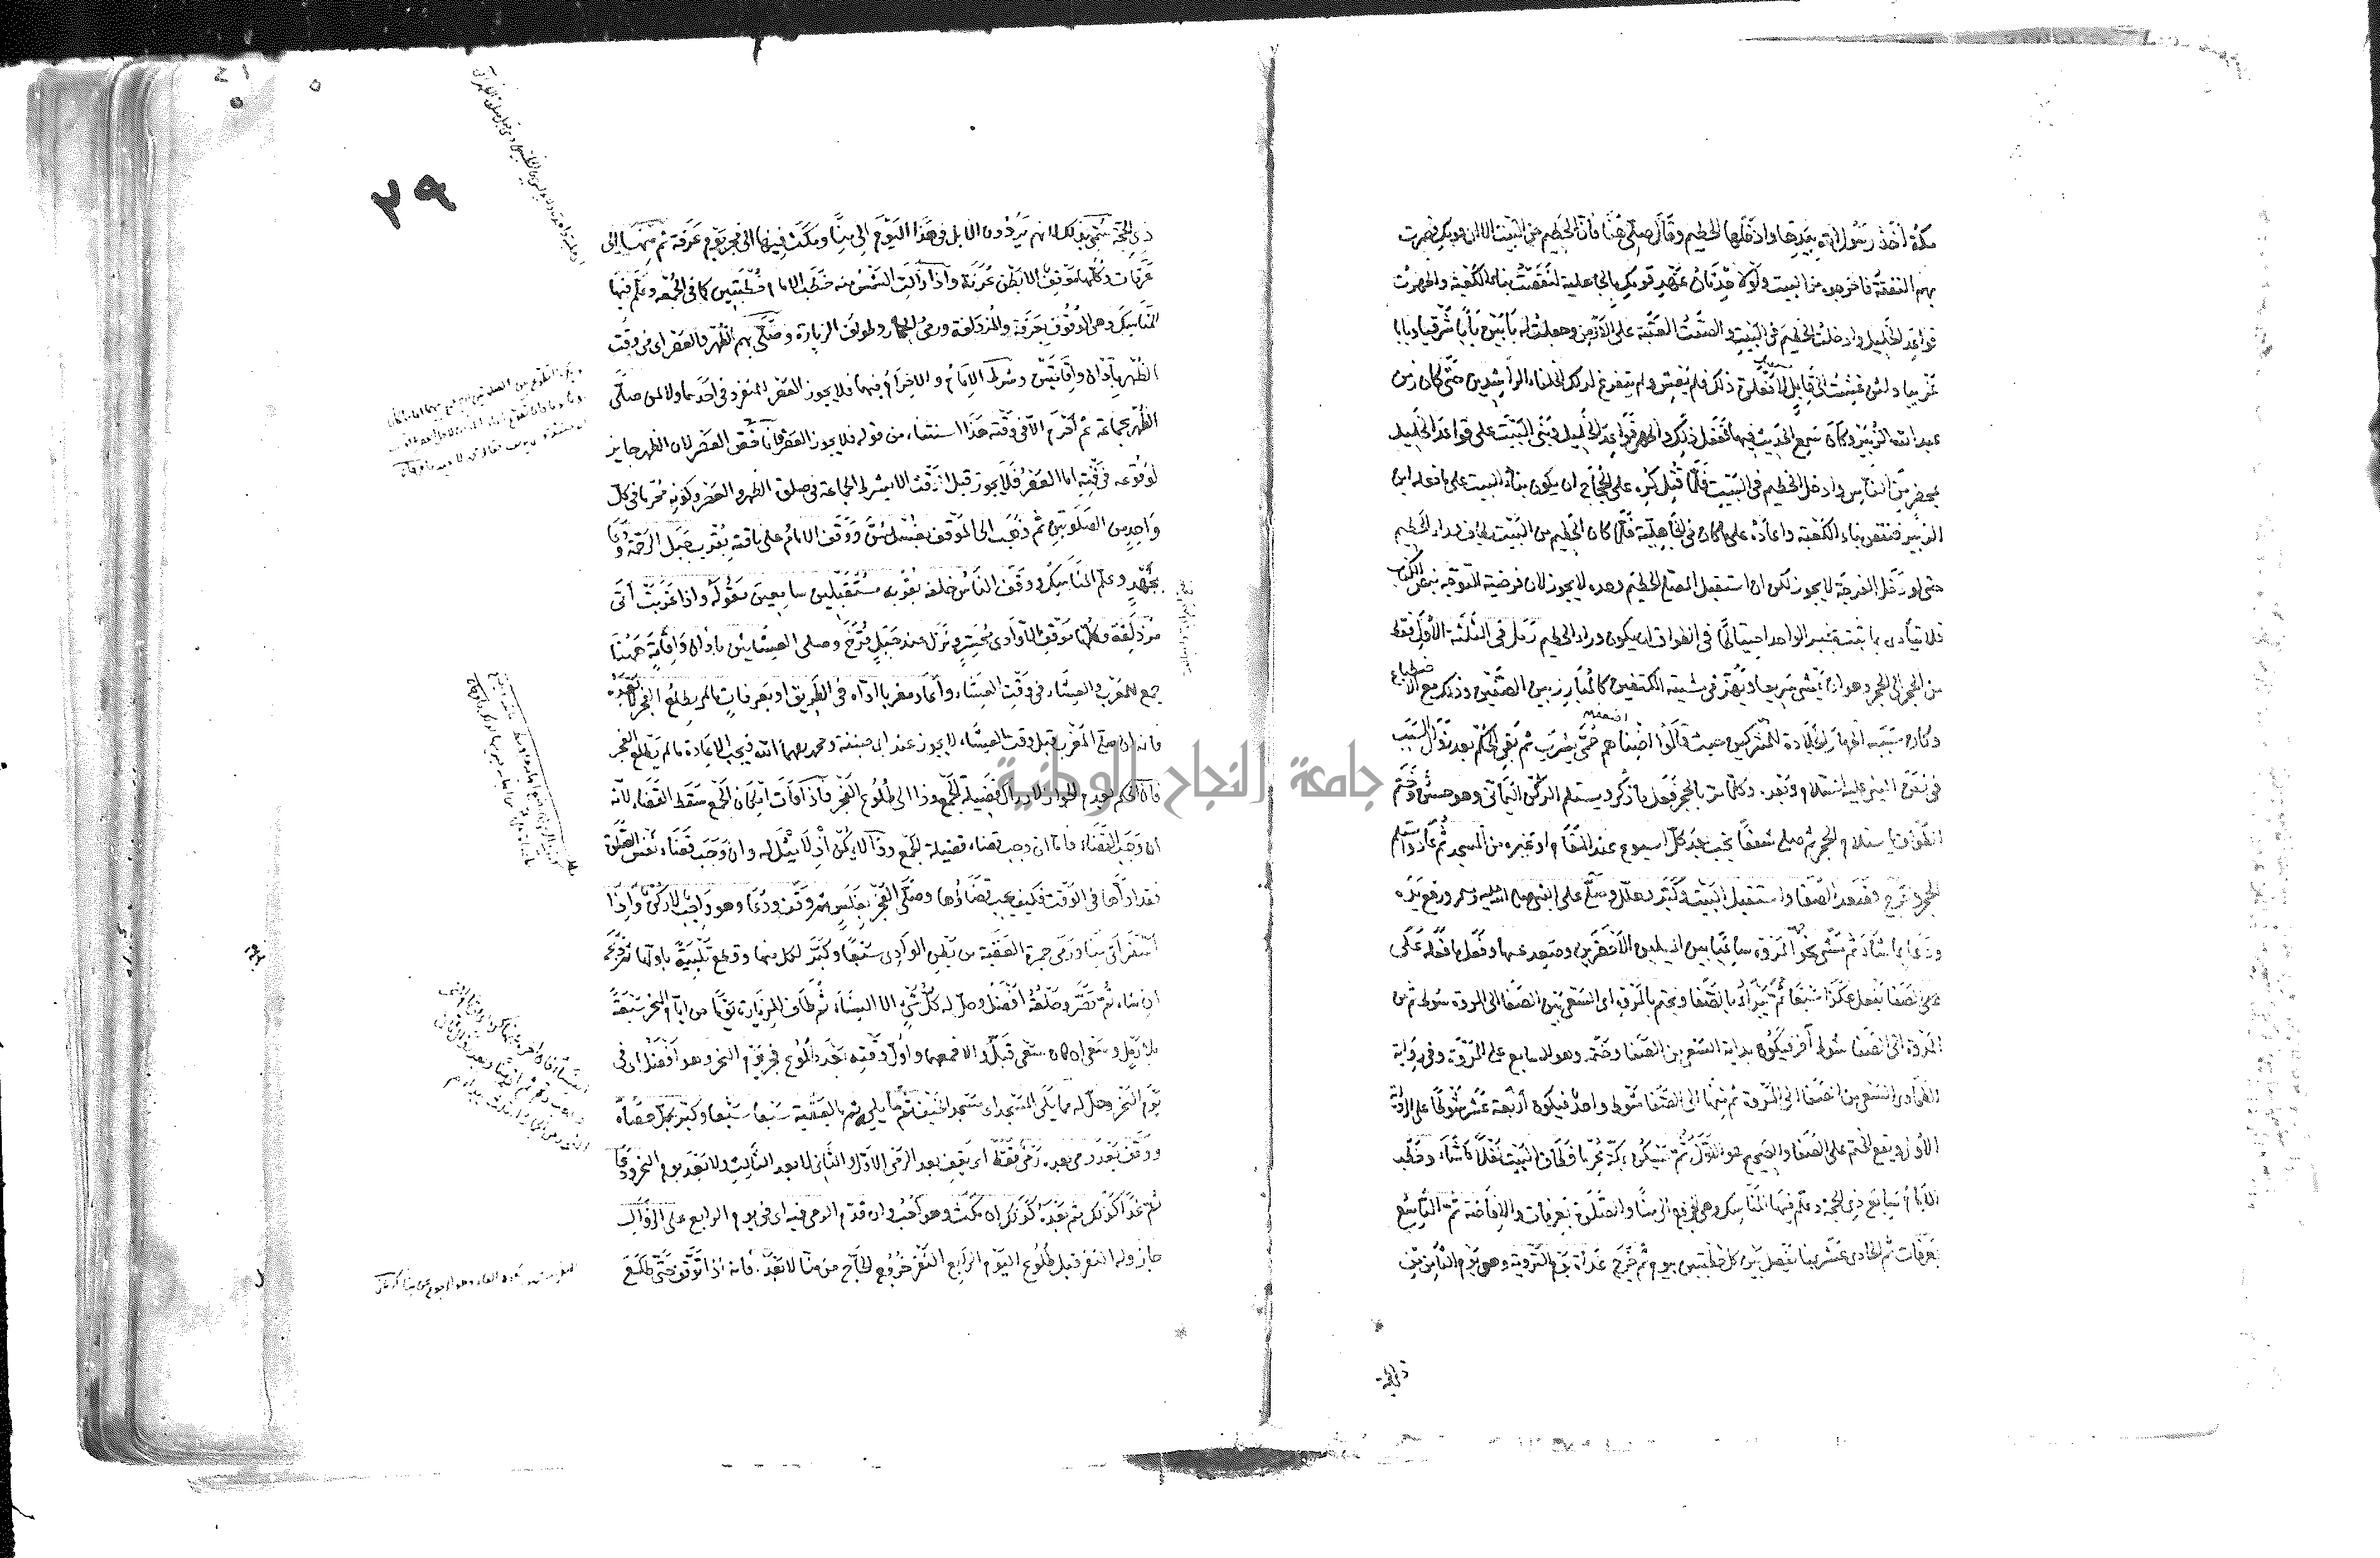 مكة أخذ رسول الله بيدها وادخلها الحطيم وقال صلى هنا فان الحطيم من البيت الا ان قومك قصرت
بهم النفقة فاخرجوه من البيت ولولا حدثان عهد قومك بالجاهلية لنقضت بناء الكعبة واظهرت
قواعد الخليل وادخلت الحطيم في البيت والصقت العتبة على الارض وجعلت له بابين بابا شرقيا وبابا
غربيا ولئن عشت الى قابل لافعلن ذلك فلم يعش ولم يتفرغ لذلك الخلفاء الراشدين حتى كان زمن
عبد الله الزبير وكان سمع الحديث فيها ففعل ذلك واظهر قواعد الخليل وبنى البيت على قواعد الخليل
بمحضر من الناس وادخل الحطيم في البيت فلما قتل كره على الحجاج ان يكون بناء البيت على ما فعله ابن
الزبير فنقض بناء الكعبة واعاده على ما كان في الجاهلية فلما كان الحطيم من البيت يطاف وراء الحطيم
حتى لو دخل الفرجة لا يجوز لكن ان استقبل المصلي الحطيم وحده لا يجوز لان فرضية التوجه بنص الكتاب
فلا يتأدى بما ثبت بخبر الواحد احتياطا في الطواف ان يكون وراء الحطيم رمل في الثلثة الاول فقط
من الحجر الى الحجر وهو ان يمشي سريعا ويهز في مشيته الكتفين كالمبارز بين الصفين وذلك مع الاضطباع
وكان سببه اظهار الجلادة للمشركين حيث قالوا اضناهم حمى يثرب ثم بقي الحكم بعد زوال السبب
في زمن النبي عليه السلام وبعده وكلما مر بالحجر فعل ما ذكر ويستلم الركن اليماني وهو حسن وختم
الطواف باستلام الحجر ثم صلى شفعا يجب بعد كل اسبوع عند المقام او غيره من المسجد ثم عاد واستلم
الحجر وخرج فصعد الصفا واستقبل البيت وكبر وهلل وصلى على النبي صلى الله عليه وسلم ورفع يديه
ودعا بما شاء ثم مشى نحو المروة ساعيا بين الميلين الاخضرين وصعد عليها وفعل ما فعله على
على الصفا يفعل هكذا سبعا ثم يبدأ بالصفا ويختم بالمروة اى السعي بين الصفا الى المروة شوط ثم من
المروة الى الصفا شوط آخر فيكون بداية السعي من الصفا وختمه وهو السابع على المروة وفي رواية
الطحاوي السعي من الصفا الى المروة ثم منها الى الصفا شوط واحد فيكون أربعة عشر شوطا على الرواية
الاولى ويقع الختم على الصفا والصحيح هو الاول ثم يسكن بمكة محرما فطاف البيت نفلا ما شاء وخطب
الامام سابع ذي الحجة وعلم فيها المناسك وهي الخروج الى منا والصلوة بعرفات والافاضة ثم التاسع
بعرفات ثم الحادي عشر بمنا يفصل بين كل خطبتين بيوم ثم خرج غداة يوم التروية وهو يوم الثامن من
ذي الحجة
٢٩
ذي الحجة سمي بذلك لانهم يروون الابل في هذا اليوم الى منا ومكث فيها الى فجر يوم عرفة ثم منها الى
عرفات وكلها موقف الا بطن عرنة واذا زالت الشمس منه خطب الامام خطبتين كما في الجمعة وعلم فيها
المناسك وهي الوقوف بعرفة والمزدلفة ورمي الجمار وطواف الزيارة وصلى بهم الظهر والعصر اى في وقت
الظهر باذان واقامتين وشرط الامام والاحرام فيهما فلا يجوز العصر للمنفرد في احدهما ولا لمن صلى
الظهر بجماعة ثم أحرم الا في وقته هذا استثناء من قوله فلا يجوز العصر وانما خص العصر لان الظهر جايز
لوقوعه في وقته اما العصر فلا يجوز قبل الوقت الا بشرط الجماعة في صلوة الظهر والعصر وكونه محرما في كل
واحد من الصلوتين ثم ذهب الى الموقف بغسل سن ووقف الامام على ناقته بقرب جبل الرحمة ودعا
بجهد وعلم المناسك ووقف الناس خلفه بقربه مستقبلين سامعين مقوله واذا غربت أتى
مزدلفة وكلها موقف الا وادي محسر ونزل عند جبل قزح وصلى العشائين باذان واقامة ههنا
جمع المغرب والعشاء في وقت العشاء واعاد مغربا اداه في الطريق او بعرفات ما لم يطلع الفجر لا بعده
فانه ان صلى المغرب قبل وقت العشاء لا يجوز عند ابي حنيفة ومحمد رحمهما الله فيجب الاعادة ما لم يطلع الفجر
فان الحكم لعدم الجواز لادراك فضيلة الجمع وذا الى طلوع الفجر فاذا فات امكان الجمع سقط القضاء لانه
ان وجب القضاء فاما ان وجب قضاء فضيلة الجمع وذا لا يمكن اذ لا مثل له وان وجب قضاء نفس الصلوة
فقد اداها في الوقت فكيف يجب قضاؤها وصلى الفجر بغلس ثم وقف ودعا وهو واجب لا ركن واذا
أسفر أتى منا ورمى جمرة العقبة من بطن الوادي سبعا وكبر لكل منها وقطع تلبيته باولها ثم ذبح
ان شاء ثم قصر وحلقه أفضل وحل له كل شيء الا النساء ثم طاف للزيارة يوما من ايام النحر سبعة
بلا رمل وسعي ان كان سعى قبل والا فمعهما واول وقته بعد طلوع فجر يوم النحر وهو أفضل اى في
يوم النحر وحل له مما يلي المسجد اى مسجد الخيف ثم ما يليه ثم بالعقبة سبعا سبعا وكبر بكل حصاة
ووقف بعد رمي بعده رمي فقط اى يقف بعد الرمي الاول والثاني لا بعد الثالث ولا بعد يوم النحر ودعا
ثم غدا كذلك ثم بعده كذلك ان مكث وهو أحب وان قدم الرمي فيه اى في يوم الرابع على الزوال
جاز وله النفر قبل طلوع اليوم الرابع النفر خروج الحاج من منا لا بعده فانه اذا توقف حتى طلع
جامعة النجاح الوطنية